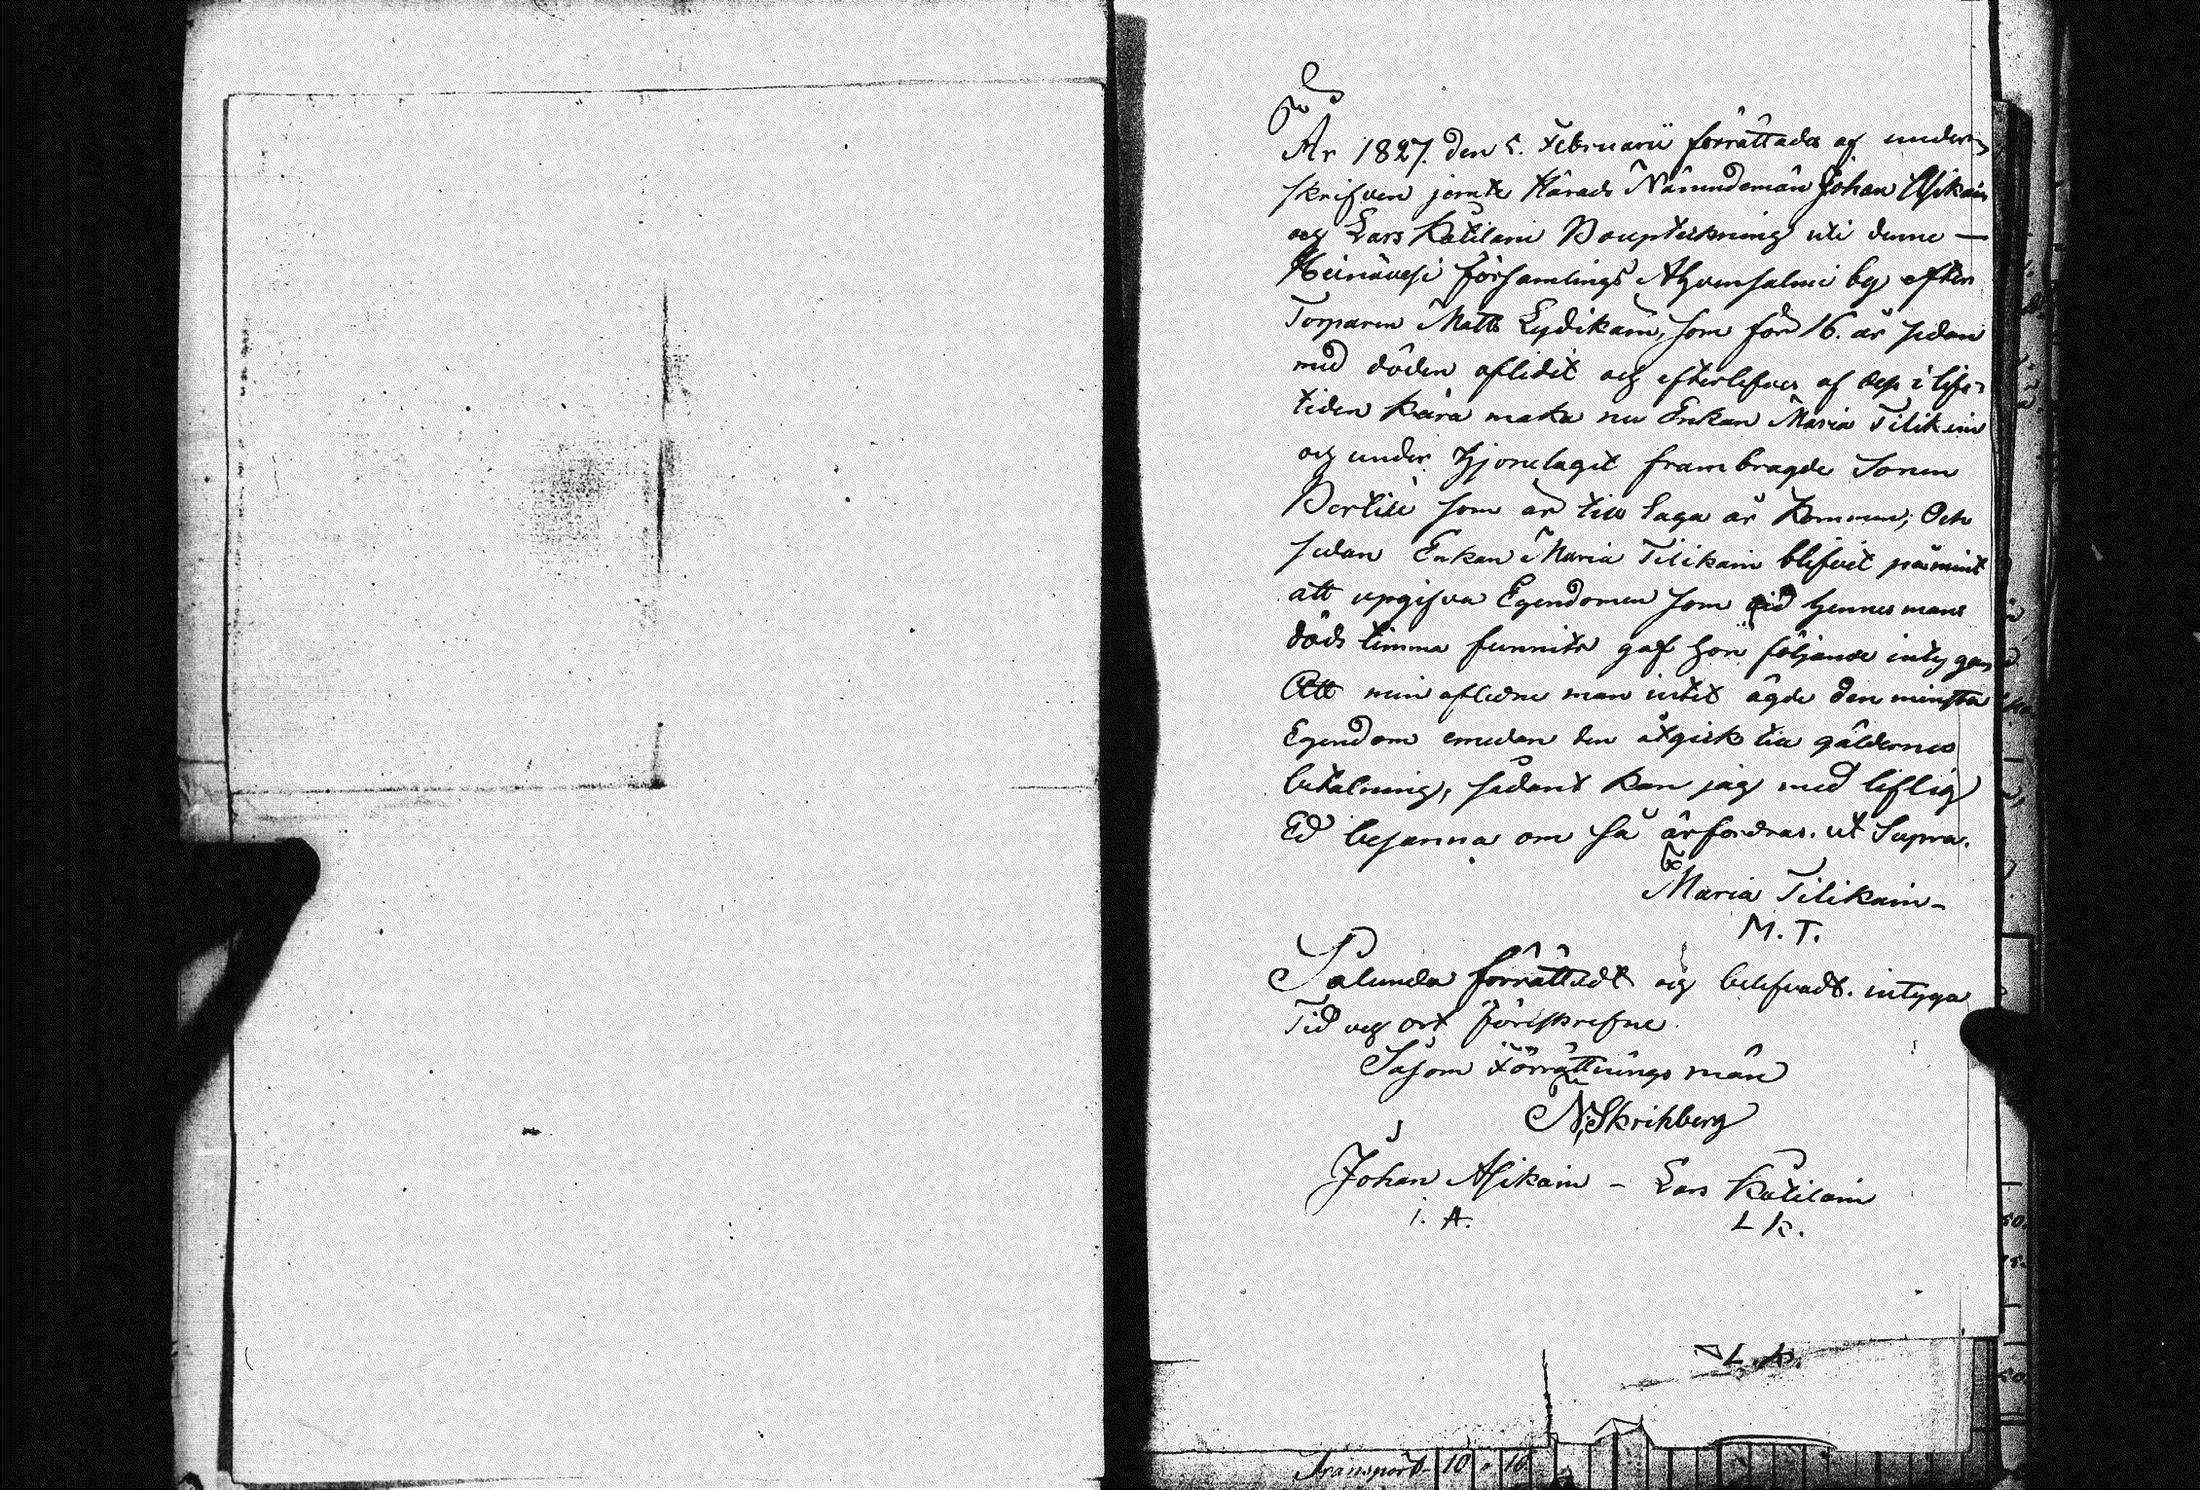 År 1827. den 5. Februarii förrättades af under-
skrifven jemte Härads Nämndemän Johan Asikain
och Lars Kätilain Bouptekning uti denne
Heinävesi församlings Ahvensalmi by efter
Torparen Matts Lydikain, som för 16. år sedan
med döden aflidit och efterlefves af dess i lifs-
tiden kära maka nu Enkan Maria Tilikain
och under hjonelaget frambragde Sonen
Bertill som är till laga år kommen, Och
sedan Enkan Maria Tilikain blifvit påmint
att upgifva Egendomen som vid hennes mans
döds timma funnits gaf hon följande intygan,
Att min afledne man intet ägde den minsta
Egendom emedan den åtgick till gäldernes
betalning, sådant kan jag med liflig
Ed besanna om så ärfordras. ut Supra.
Maria Tilikain-
M. T.
Sålunda förrättadt och belefvadt. intyga
Tid och ort föreskrefne
Såsom Förrättnings män
N. Skrikberg
Johan Asikain - Lars Kätilain
I. A. L K.
L. K.
Transport 10 10